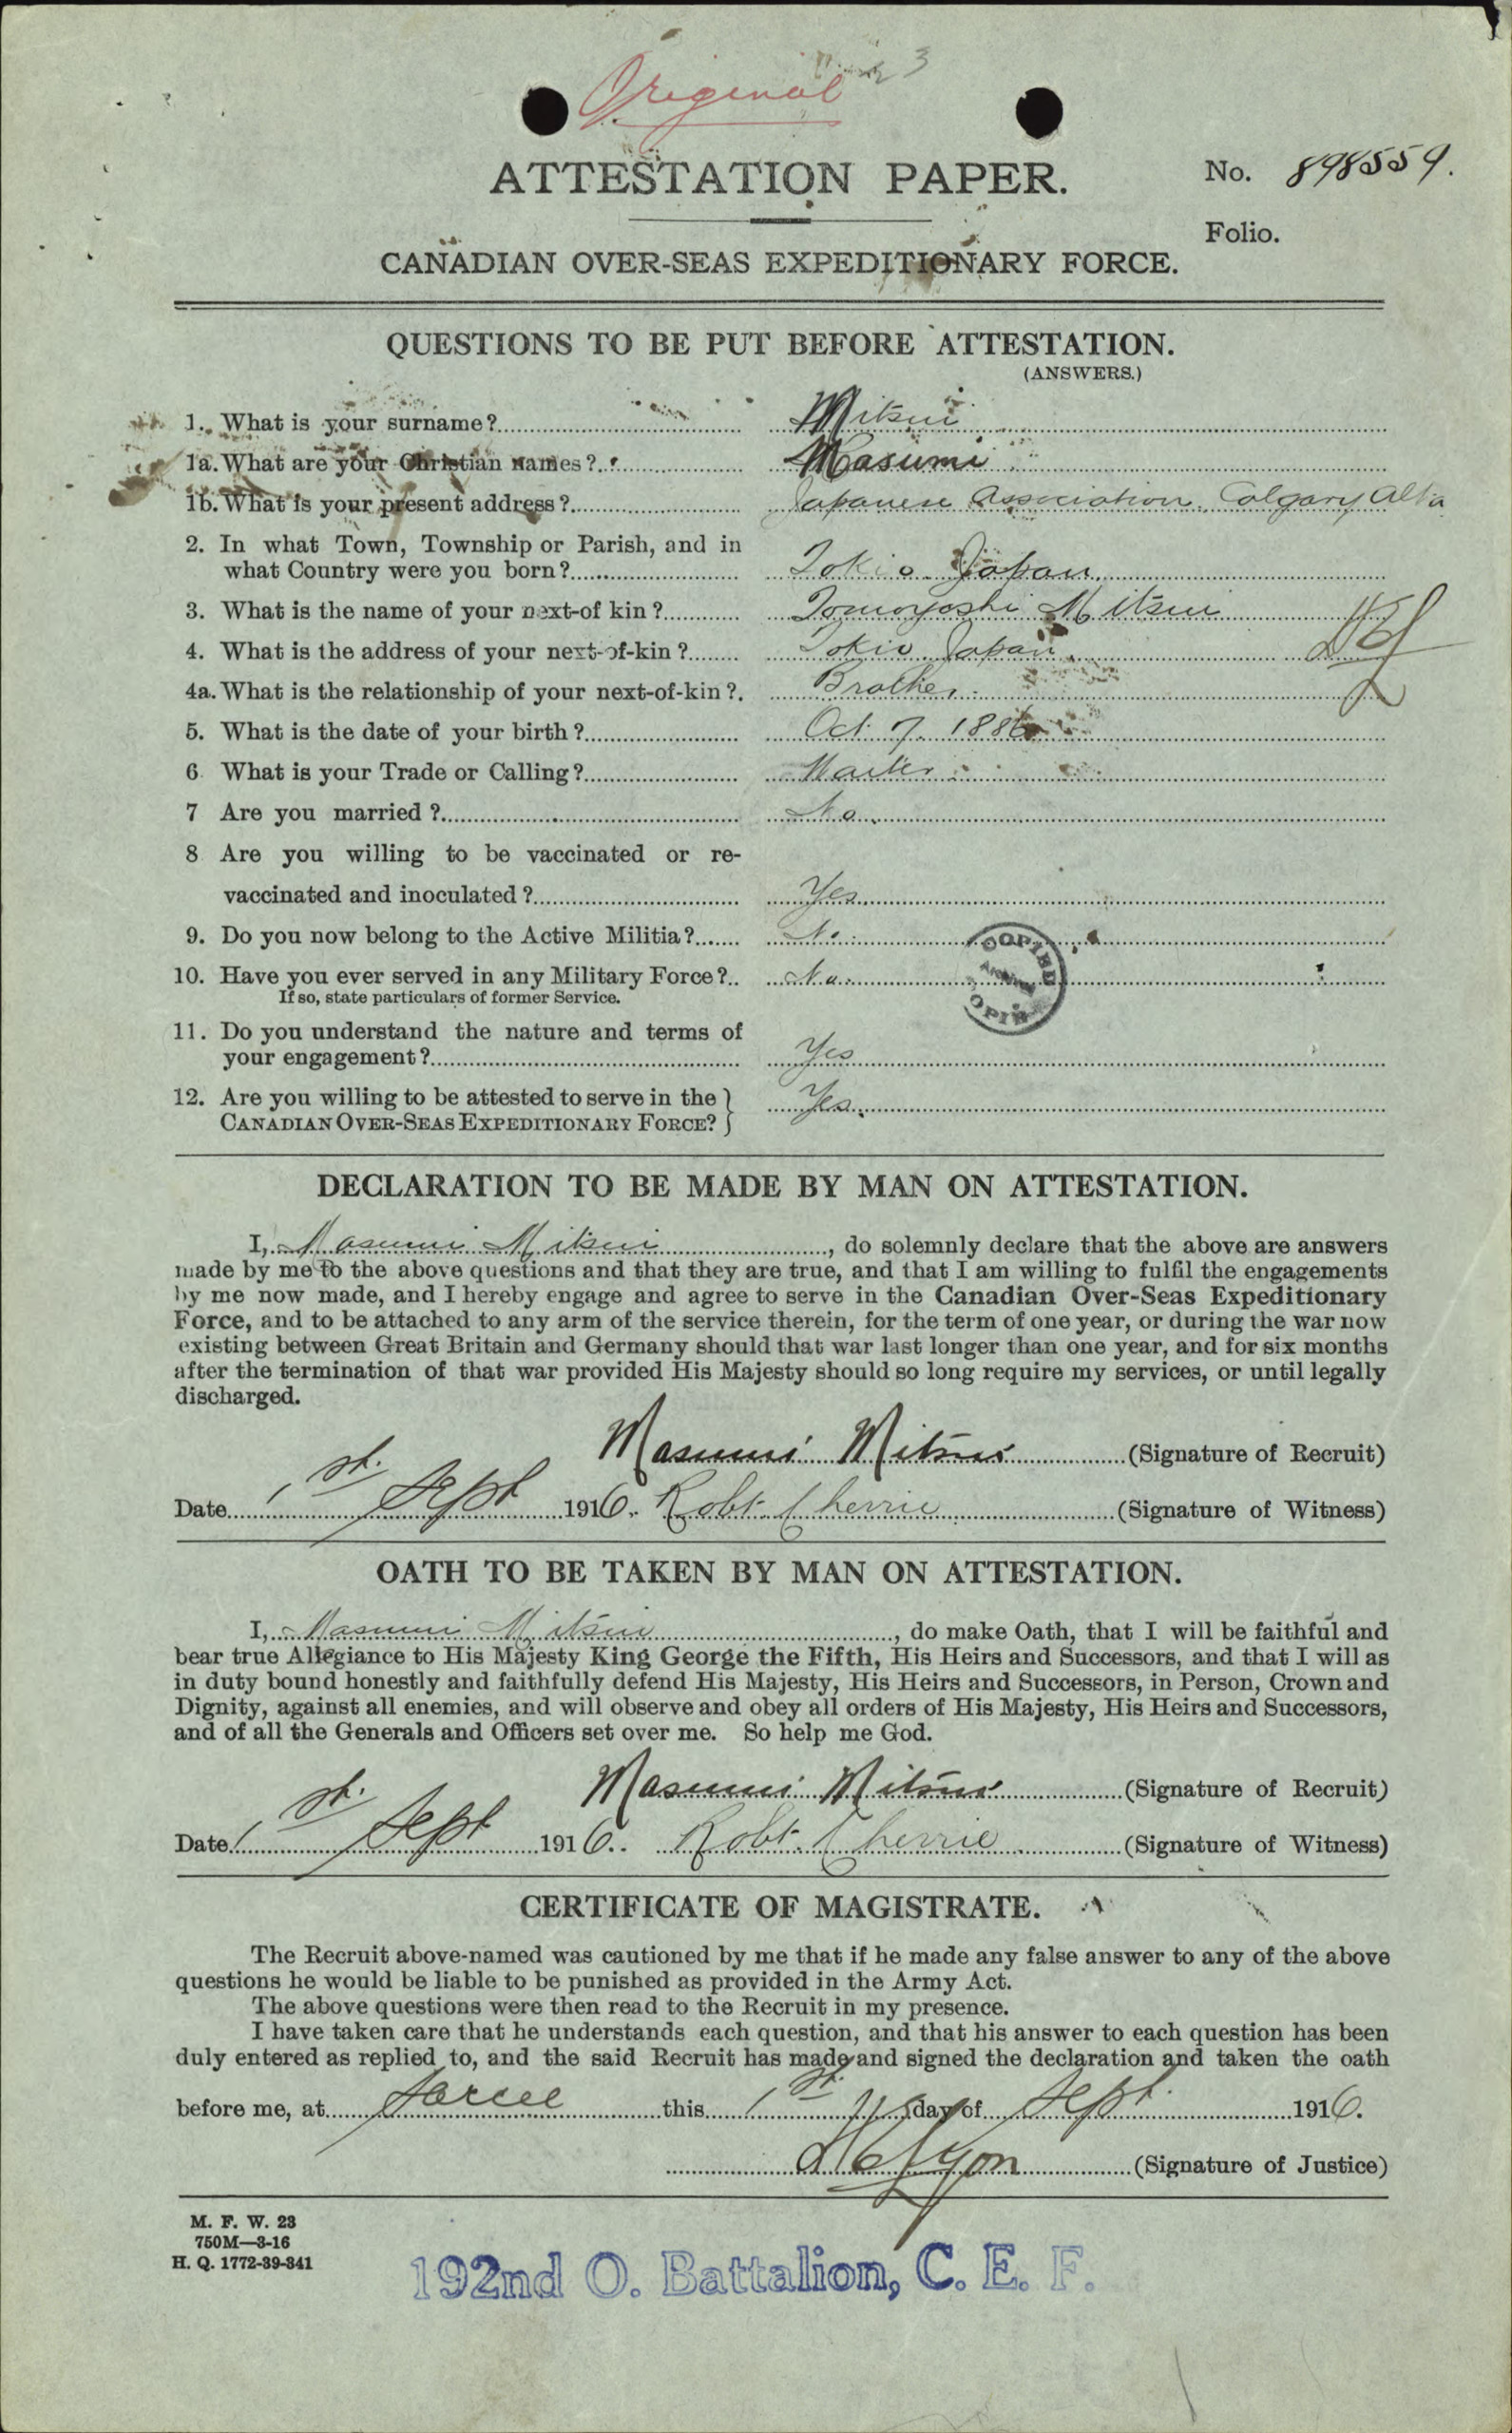 Original
ATTESTATION PAPER.
No. 898559.
Folio.
CANADIAN OVER-SEAS EXPEDITIONARY FORCE.
QUESTIONS TO BE PUT BEFORE ATTESTATION.
(ANSWERS.)
1. What is your surname? Mitsui
1a. What are your Christian names? Masumi
1b. What is your present address? Japanese Association, Calgary Alta
2. In what Town, Township or Parish, and in
what Country were you born? Tokio Japan
3. What is the name of your next-of kin? Tomoyoshi Mitsui
4. What is the address of your next-of-kin? Tokio Japan
4a. What is the relationship of your next-of-kin? Brother
5. What is the date of your birth? Oct 7, 1886
6 What is your Trade or Calling? Waiter
7 Are you married? No
8 Are you willing to be vaccinated or re-
vaccinated and inoculated? Yes
9. Do you now belong to the Active Militia? No
10. Have you ever served in any Military Force? No
If so, state particulars of former Service.
COPIED
11. Do you understand the nature and terms of
your engagement? Yes
12. Are you willing to be attested to serve in the
CANADIAN OVER-SEAS EXPEDITIONARY FORCE? Yes.
DECLARATION TO BE MADE BY MAN ON ATTESTATION.
I, Masumi Mitsui, do solemnly declare that the above are answers
made by me to the above questions and that they are true, and that I am willing to fulfil the engagements
by me now made, and I hereby engage and agree to serve in the Canadian Over-Seas Expeditionary
Force, and to be attached to any arm of the service therein, for the term of one year, or during the war now
existing between Great Britain and Germany should that war last longer than one year, and for six months
after the termination of that war provided His Majesty should so long require my services, or until legally
discharged.
Masumi Mitsui (Signature of Recruit)
Date 1st Sept 1916. Robt. Cherrie (Signature of Witness)
OATH TO BE TAKEN BY MAN ON ATTESTATION.
I, Masumi Mitsui, do make Oath, that I will be faithful and
bear true Allegiance to His Majesty King George the Fifth, His Heirs and Successors, and that I will as
in duty bound honestly and faithfully defend His Majesty, His Heirs and Successors, in Person, Crown and
Dignity, against all enemies, and will observe and obey all orders of His Majesty, His Heirs and Successors,
and of all the Generals and Officers set over me. So help me God.
Masumi Mitsui (Signature of Recruit)
Date 1st Sept 1916. Robt. Cherrie (Signature of Witness)
CERTIFICATE OF MAGISTRATE.
The Recruit above-named was cautioned by me that if he made any false answer to any of the above
questions he would be liable to be punished as provided in the Army Act.
The above questions were then read to the Recruit in my presence.
I have taken care that he understands each question, and that his answer to each question has been
duly entered as replied to, and the said Recruit has made and signed the declaration and taken the oath
before me, at Sarcee this 1st day of Sept. 1916.
(Signature of Justice)
M. F. W. 23
750M—3-16
H. Q. 1772-39-341
192nd O. Battalion, C. E. F.